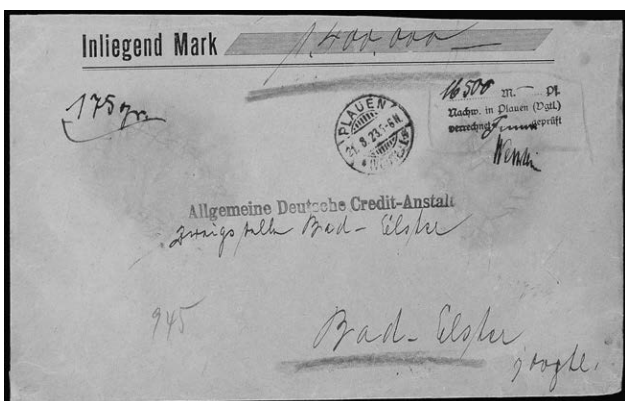 Inliegend Mark 1,400,000
175 gr.
PLAUEN
21. 8. 23. 5-6 N.
16500 M. — Pf.
Nachw. in Plauen (Vgtl)
verrechnet geprüft
Allgemeine Deutsche Credit-Anstalt
Zweigstelle Bad-Elster
945
Bad-Elster
Vogtl.